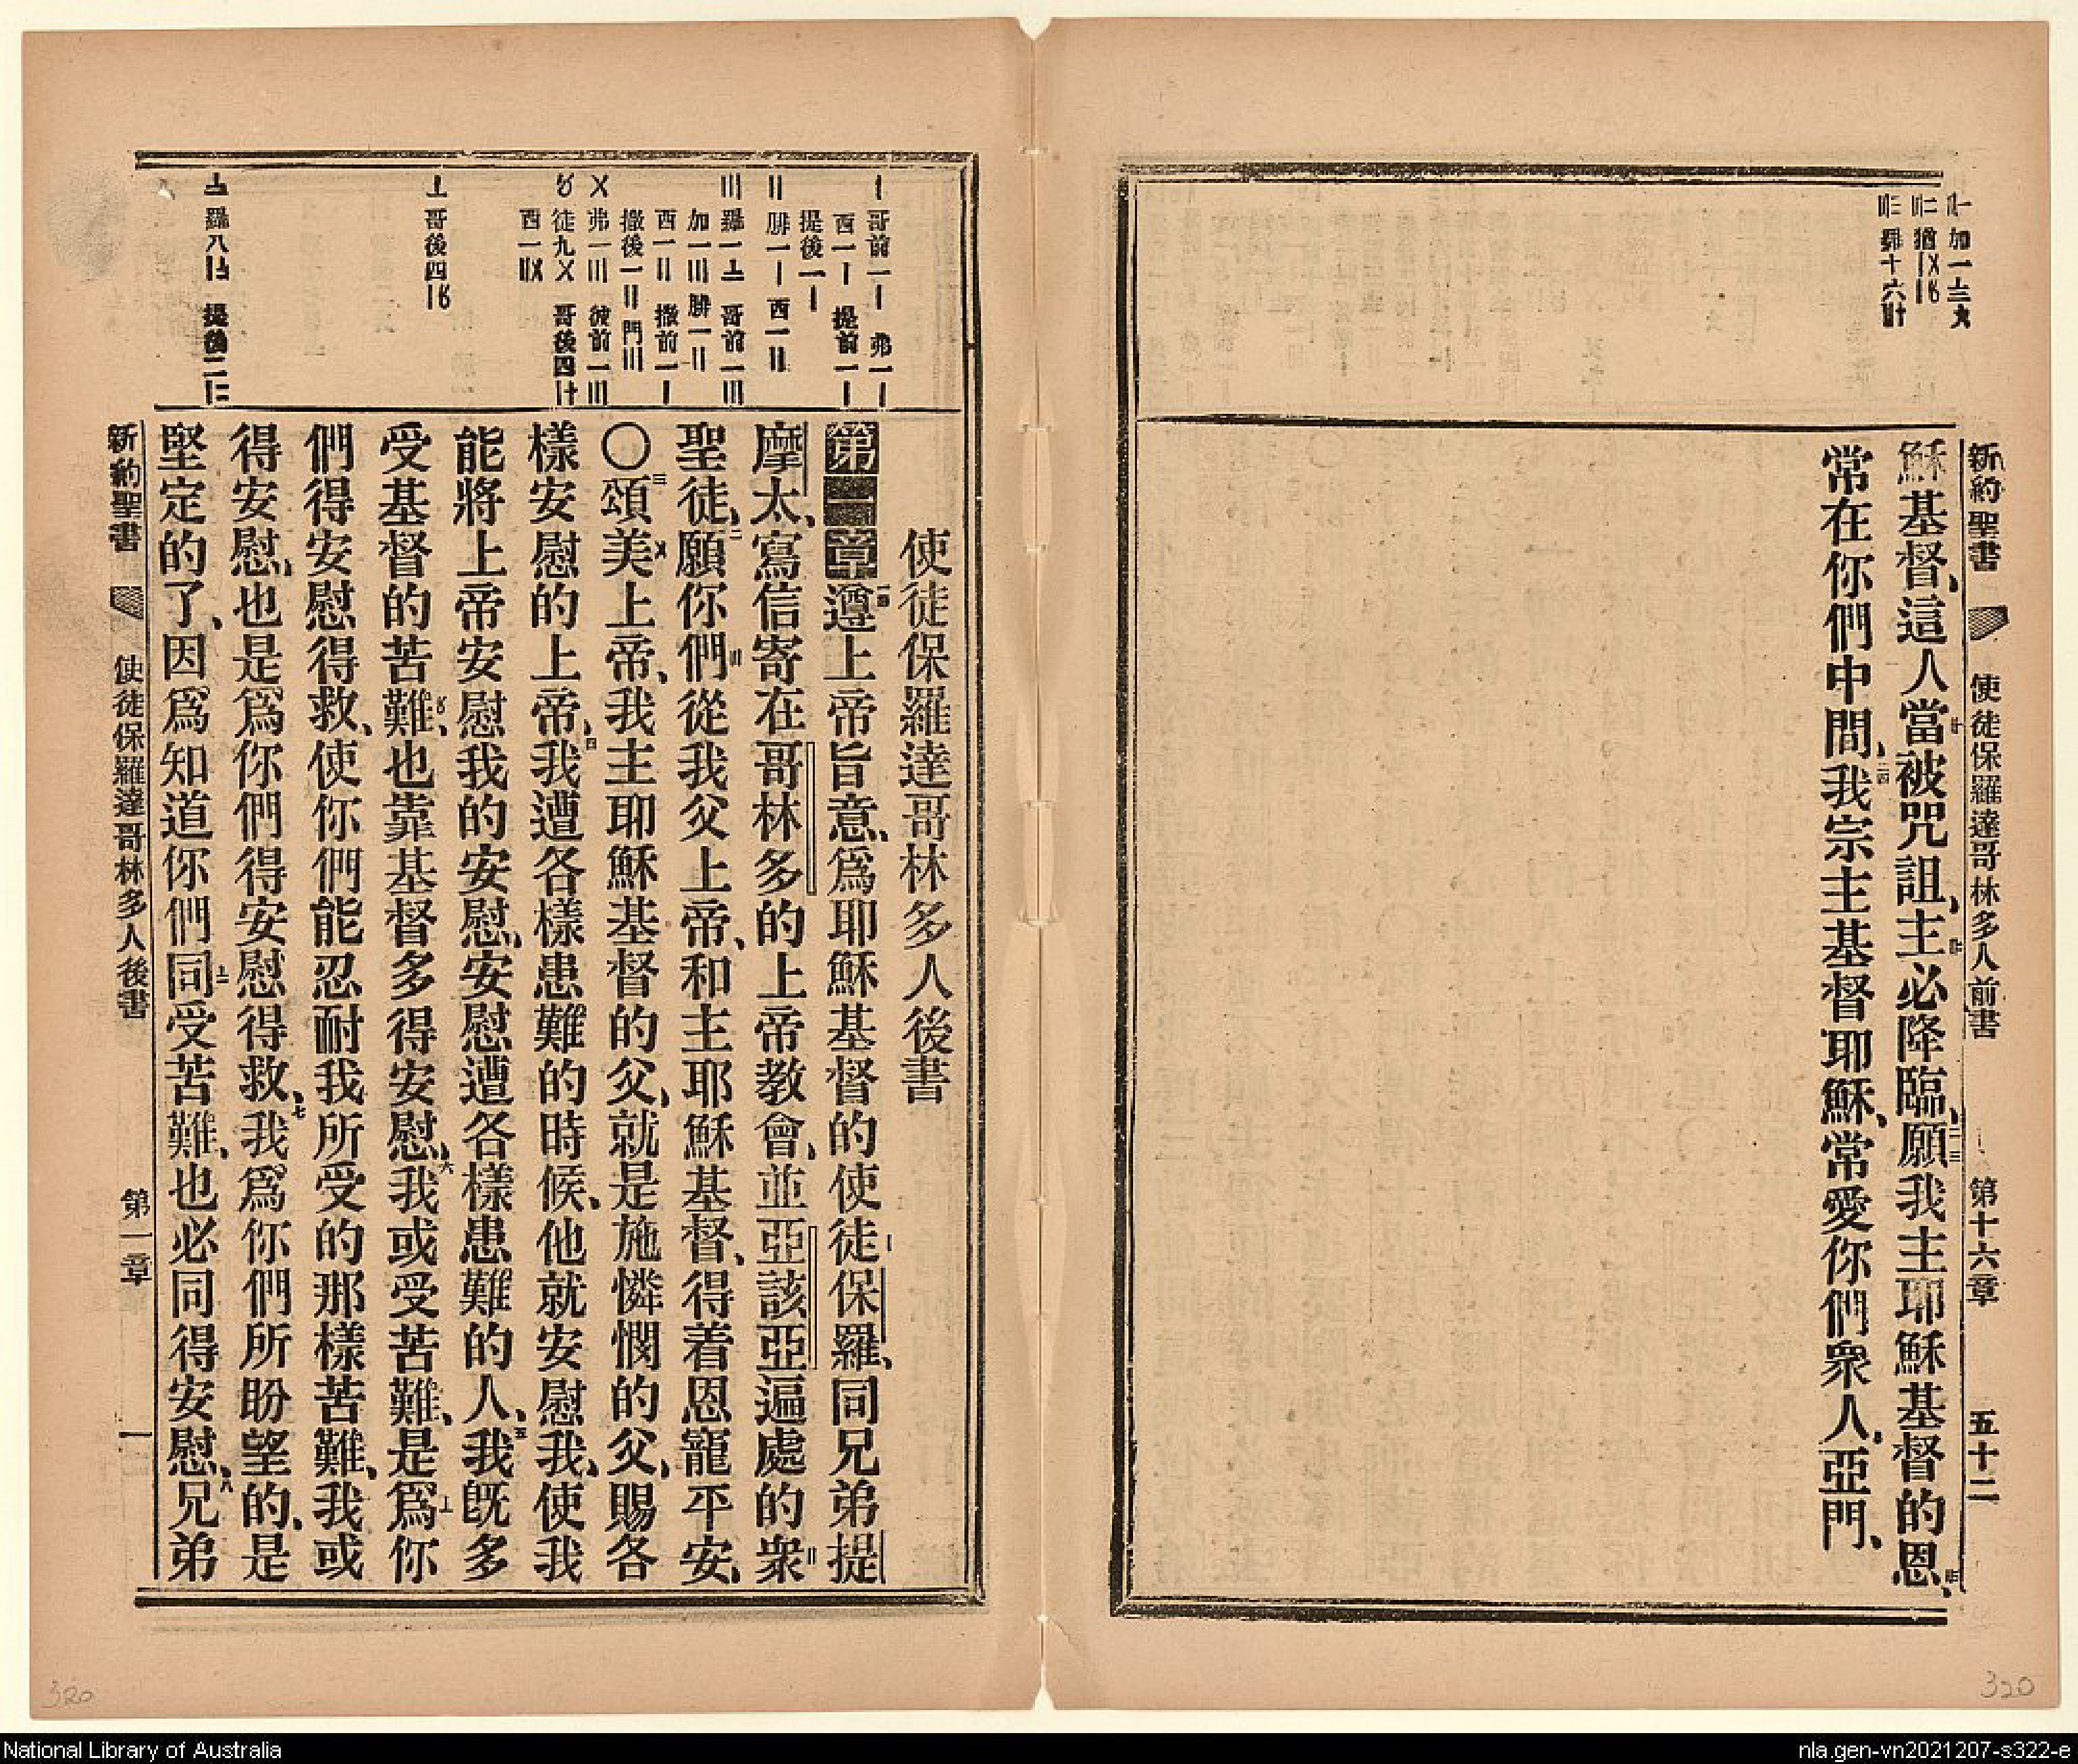 新約聖書 使徒保羅達哥林多人前書 第十六章 五十二
穌基督、這人當被咒詛、主必降臨、二三願我主耶穌基督的恩、
常在你們中間、二四我宗主基督耶穌、常愛你們衆人、亞門、
使徒保羅達哥林多人後書
〡哥前一〡 弗一〡
西一〡 提前一〡
提後一〡
〢腓一〡 西一〢
〣羅一〧 哥前一〣
加一〣 腓一〢
西一〢 撒前一〡
撒後一〢 門〣
〤弗一〣 彼前一〣
〥徒九〤 哥後四〸
西一〢〤
〦哥後四〡〥
〧羅八〡〧 提後二〡二
第一章一遵上帝旨意、爲耶穌基督的使徒保羅、同兄弟提
摩太、寫信寄在哥林多的上帝教會、並亞該亞遍處的衆
聖徒、二願你們從我父上帝、和主耶穌基督、得着恩寵平安、
〇三頌美上帝、我主耶穌基督的父、就是施憐憫的父、賜各
樣安慰的上帝、四我遭各樣患難的時候、他就安慰我、使我
能將上帝安慰我的安慰、安慰遭各樣患難的人、五我旣多
受基督的苦難、也靠基督多得安慰、六我或受苦難、是爲你
們得安慰得救、使你們能忍耐我所受的那樣苦難、我或
得安慰、也是爲你們得安慰得救、七我爲你們所盼望的、是
堅定的了、因爲知道你們同受苦難、也必同得安慰、八兄弟
新約聖書 使徒保羅達哥林多人後書 第一章 一
320
320
National Library of Australia
nla.gen-vn2021207-s322-e